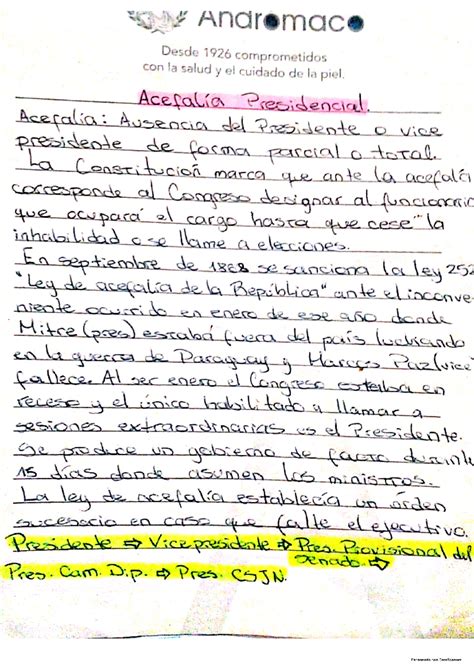 Andromaco
Desde 1926 comprometidos
con la salud y el cuidado de la piel.
Acefalía Presidencial
Acefalía: Ausencia del Presidente o vice
presidente de forma parcial o total.
La Constitución marca que ante la acefalí
corresponde al Congreso designar al funcionario
que ocupará el cargo hasta que cese la
inhabilidad o se llame a elecciones.
En septiembre de 1868 se sanciona la ley 252
"Ley de acefalía de la República" ante el inconve
niente ocurrido en enero de ese año donde
Mitre (pres) estaba fuera del país luchando
en la guerra de Paraguay y Marcos Paz (vice)
fallece. Al ser enero el Congreso estaba en
receso y el único habilitado a llamar a
sesiones extraordinarias es el Presidente.
Se produce un gobierno de facto durante
15 días donde asumen los ministros.
La ley de acefalía establecía un orden
sucesorio en caso que falte el ejecutivo.
Presidente ⇨ Vicepresidente ⇨ Pres. Provisional del
Senado. ⇨
Pres. Cam. Dip. ⇨ Pres. CSJN.